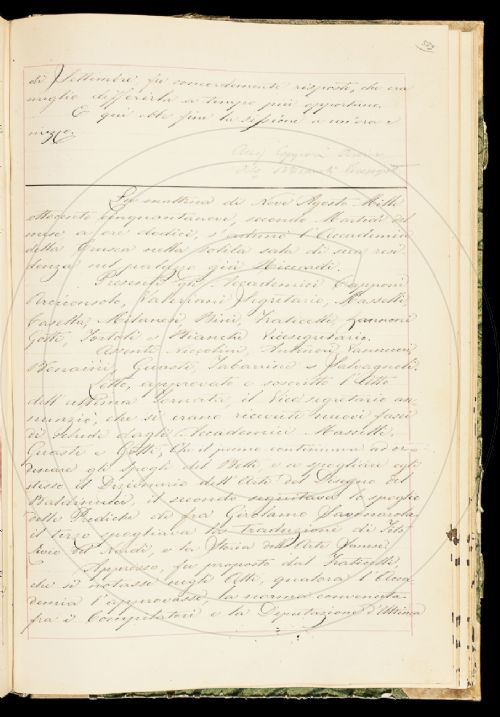 di Settembre fu concordemente risposto, che era
meglio differirla a tempo più opportuno.
E qui ebbe fine la sessione a un'ora e
mezzo.
La mattina di Nove Agosto Mille
ottocento cinquantanove, secondo Martedì del
mese a ore dodici, s'adunò l'Accademia
della Crusca nella solita sala di sua resi
denza nel palazzo già Riccardi.
Presenti gli Accademici Capponi
Arciconsolo, Valeriani Segretario, Masselli,
Casella, Milanesi, Bini, Fraticelli, Zannoni
Gotti, Tortoli e Bianchi Vicesegretario.
Assenti Niccolini, Antinori, Vannucci,
Guasti, Tabarrini e Salvagnoli.
Letto, approvato e soscritto l'Atto
dell'ultima Tornata, il Vicesegretario an
nunziò, che si erano ricevuti nuovi fasci
di schede dagli Accademici Masselli,
Guasti e Gotti; che il primo continuava ad or
dinare gli Spogli del Betti, e a spogliare egli
stesso il Dizionario dell'Arte del Disegno del
Baldinucci, il secondo seguitava lo spoglio
delle Prediche di fra Girolamo Savonarola,
il terzo spogliava la traduzione di Tito
Livio del Nardi, e la Storia dell'
Appresso, fu proposto dal Fraticelli
che si notasse negli Atti, qualora l'Acca
demia l'approvasse, la norma convenuta
fra i Compilatori e la Deputazione d'Ultima